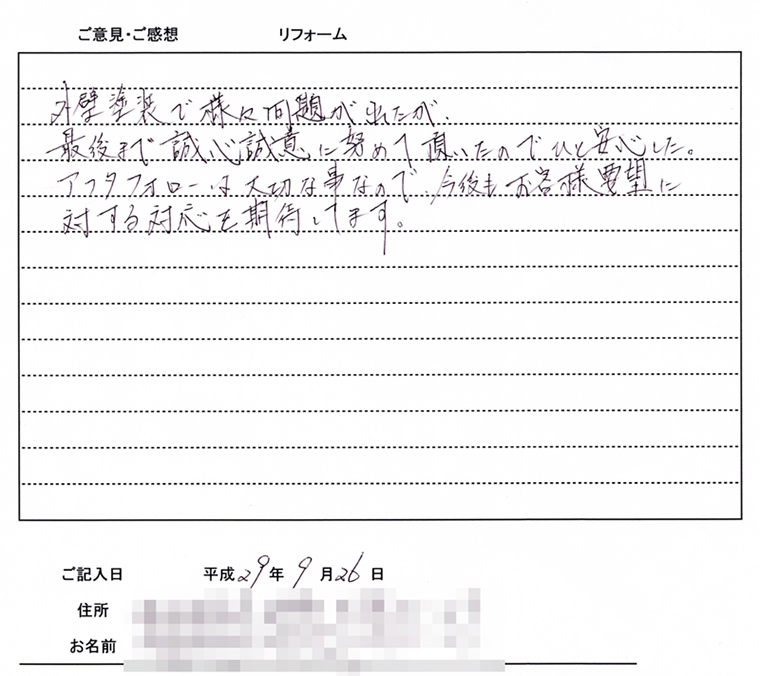 ご意見・ご感想 リフォーム
外壁塗装で様々問題が出たが、
最後まで誠心誠意に努めて頂いたのでひと安心した。
アフタフォローは大切な事なので、今後もお客様要望に
対する対応を期待してます。
ご記入日 平成29年9月26日
住所
お名前